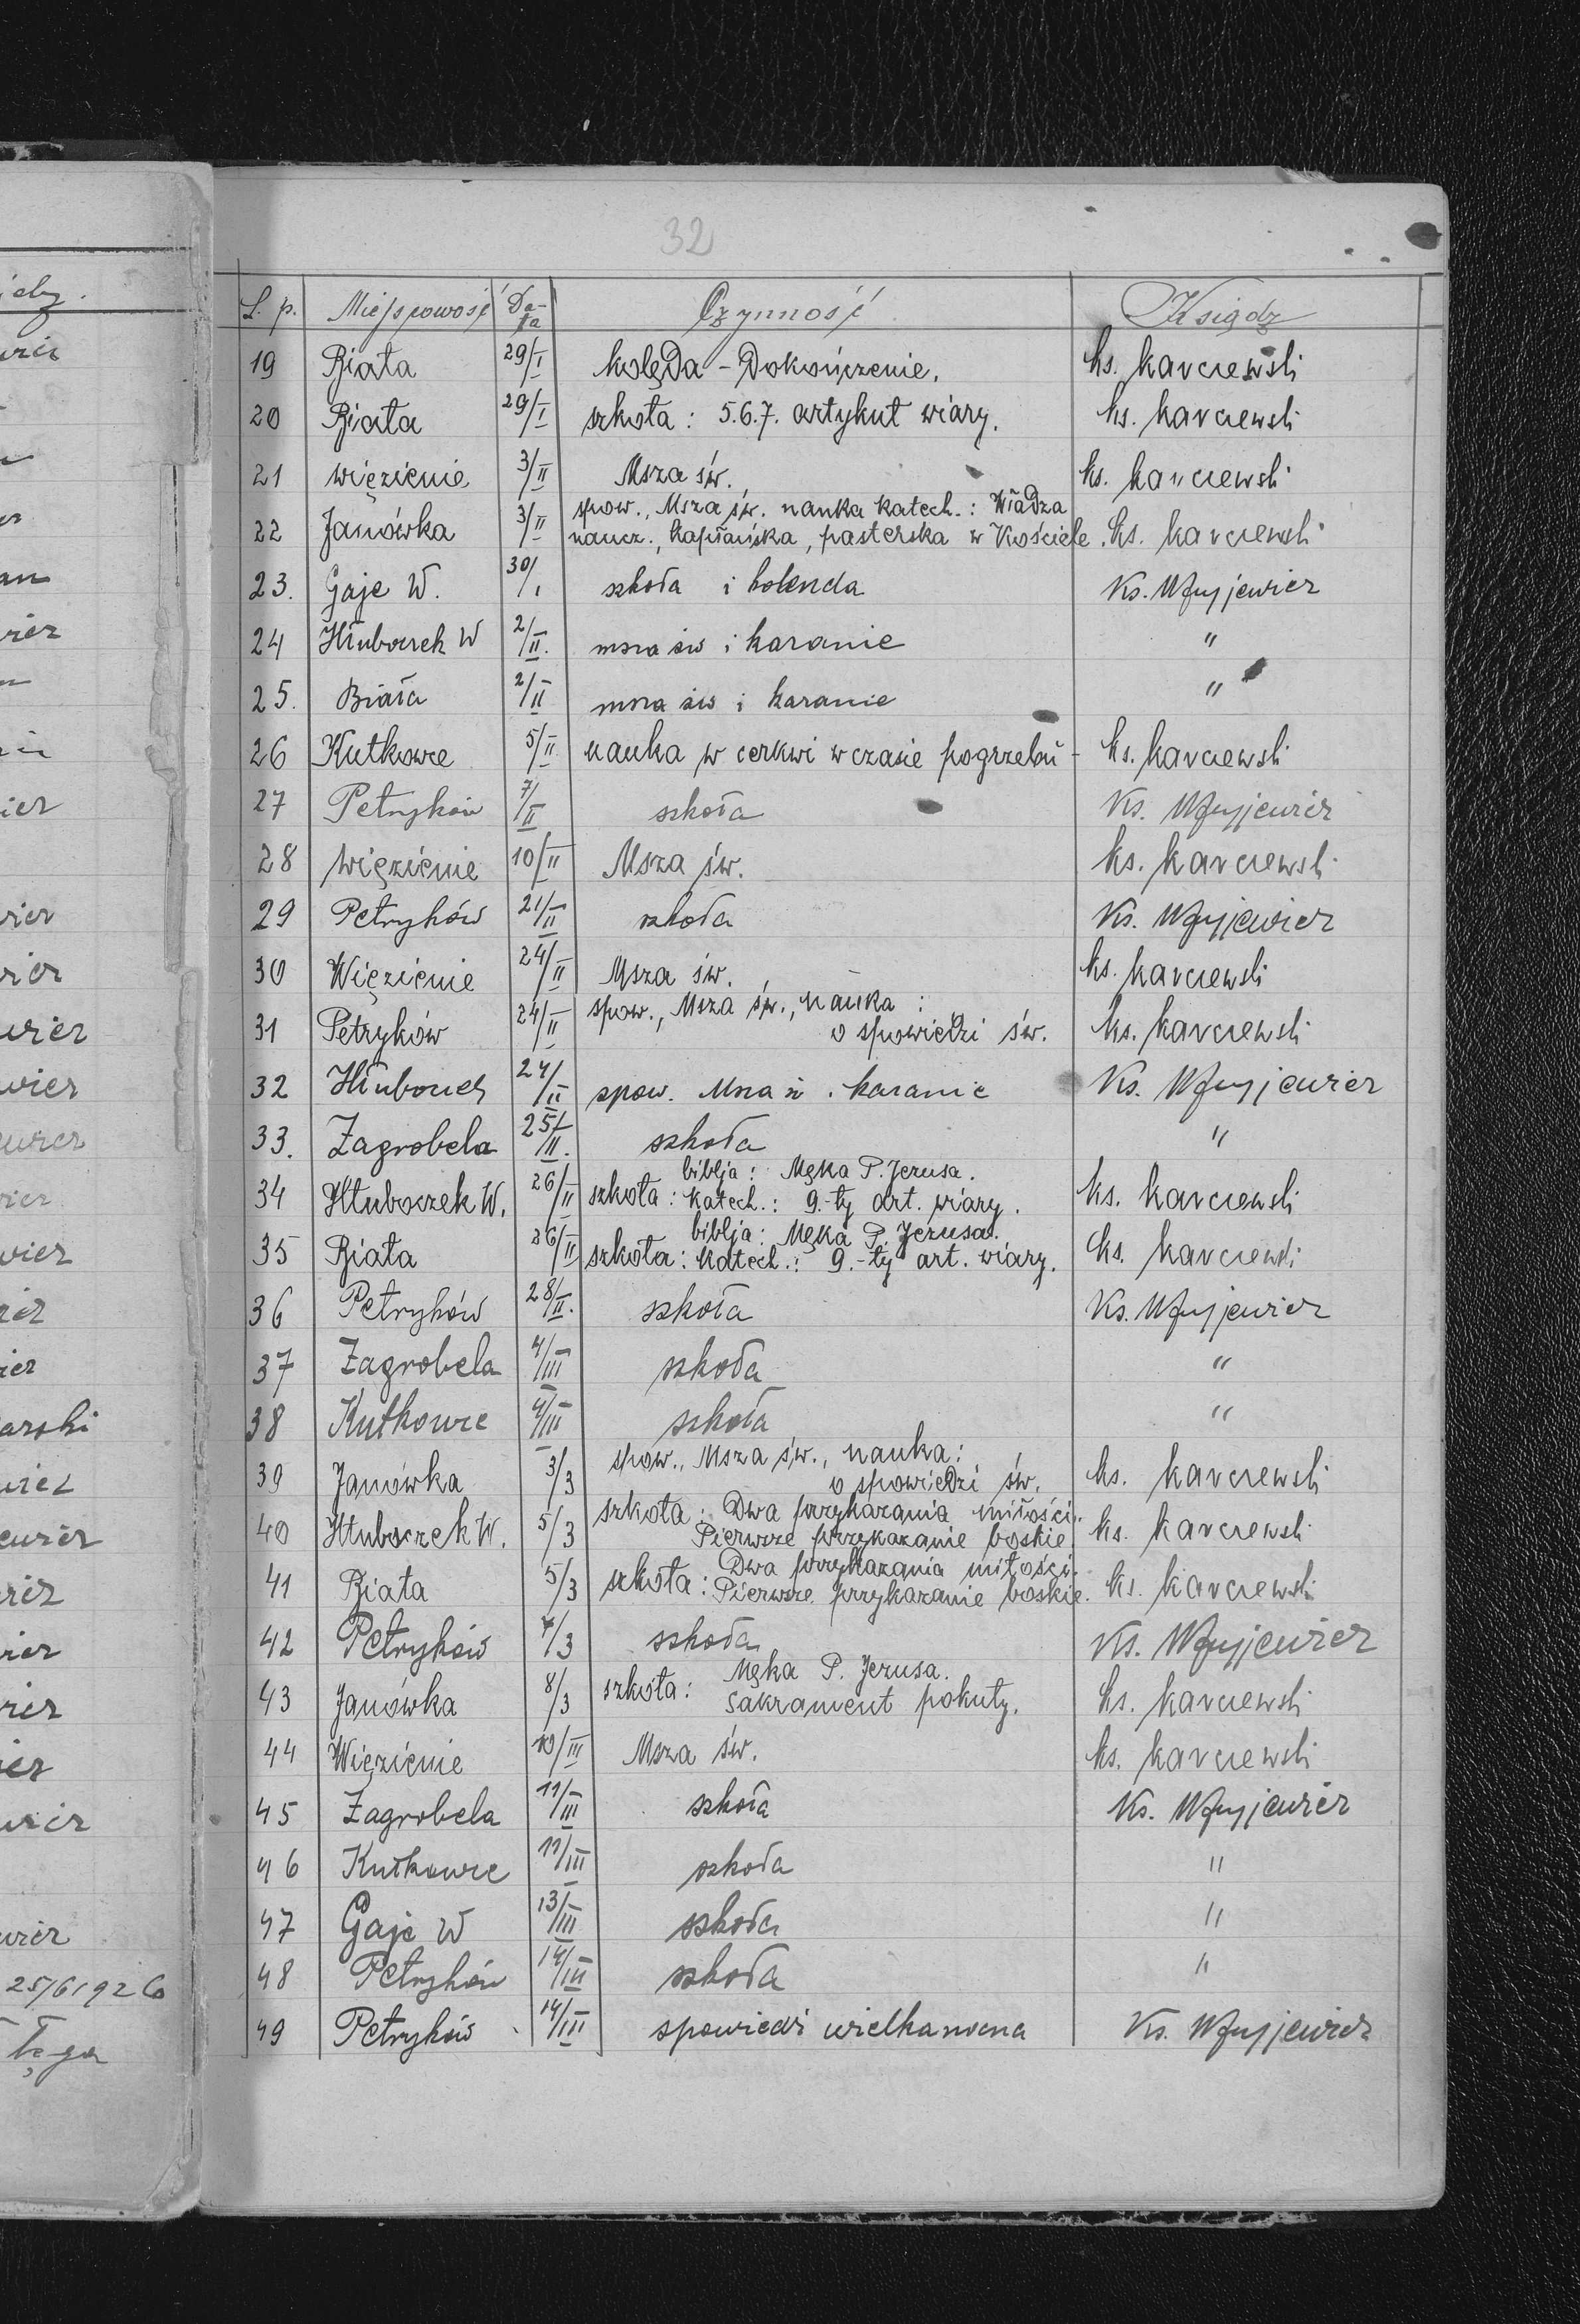 32
L. p. Miejscowość Data Czynność Ksiądz
19 Biała 29/I kolęda - Dokończenie. ks. Karczewski
20 Biała 29/I szkoła: 5.6.7. artykuł wiary. ks. Karczewski
21 więzienie 3/II Msza św. ks. Karczewski
22 Janówka 3/II spow., Msza św. nauka katech.: Władza
naucz., kapłańska, pasterska w Kościele. ks. Karczewski
23. Gaje W. 30/I szkoła i kolenda Ks.
24 Hłuboczek W 2/II. msza św i kazanie "
25. Biała 2/II msza św i kazanie "
26 Kutkowce 5/II nauka w cerkwi w czasie pogrzebu - ks. Karczewski
27 Petryków 7/II szkoła Ks.
28 więzienie 10/II Msza św. ks. Karczewski
29 Petryków 21/II szkoła Ks.
30 Więzienie 24/II Msza św. ks. Karczewski
31 Petryków 24/II spow., Msza św., nauka:
o spowiedzi św. ks. Karczewski
32 24/II spow. Msza ś. kazanie Ks.
33. Zagrobela 25/II. szkoła "
34 Hłuboczek W. 26/II szkoła: biblja: Męka P. Jezusa.
katech.: 9.-ty art. wiary. ks. Karczewski
35 Biała 26/II szkoła: biblja: Męka P. Jezusa.
katech.: 9.-ty art. wiary. ks. Karczewski
36 Petryków 28/II. szkoła Ks.
37 Zagrobela 4/III szkoła "
38 Kutkowce 4/III szkoła "
39 Janówka 3/3 spow., Msza św., nauka:
o spowiedzi św. ks. Karczewski
40 Hłuboczek W. 5/3 szkoła: Dwa przykazania miłości.
Pierwsze przykazanie boskie. ks. Karczewski
41 Biała 5/3 szkoła: Dwa przykazania miłości.
Pierwsze przykazanie boskie. ks. Karczewski
42 Petryków 7/3 szkoła Ks.
43 Janówka 8/3 szkoła: Męka P. Jezusa.
Sakrament pokuty. ks. Karczewski
44 Więzienie 10/III Msza św. ks. Karczewski
45 Zagrobela 11/III szkoła Ks.
46 Kutkowce 11/III szkoła "
47 Gaje W 13/III szkoła "
48 Petryków 14/III szkoła "
49 Petryków 14/III spowiedź wielkanocna Ks.
25/6 1926